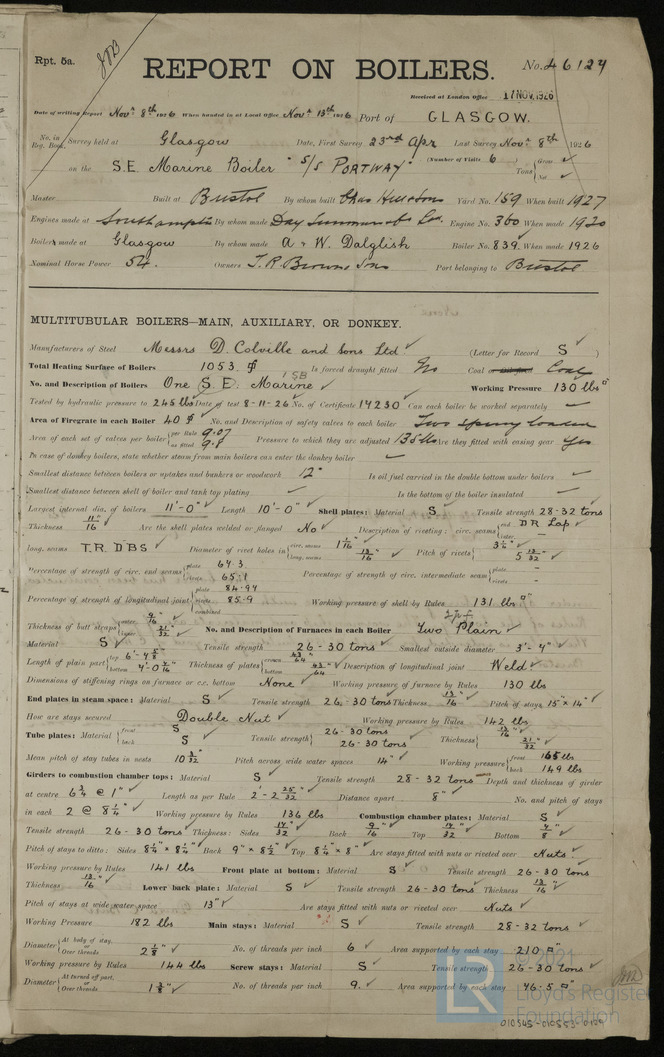 Rpt. 5a.
REPORT ON BOILERS.
No. 46124
Received at London Office 17 NOV. 1926
Date of writing Report Novr 8th 1926 When handed in at Local Office Novr 13th 1926 Port of GLASGOW.
No. in Reg. Book. Survey held at Glasgow Date, First Survey 23rd Apr Last Survey Novr 8th 1926
on the S.E. Marine Boiler "S/S PORTWAY" (Number of Visits 6) Tons { Gross Net
Master Built at Bristol By whom built Chas Hill & Sons Yard No. 159 When built 1927
Engines made at Southampton By whom made Day Summers & Co. Engine No. 360 When made 1920
Boilers made at Glasgow By whom made A & W. Dalglish Boiler No. 839. When made 1926
Nominal Horse Power 54. Owners T.R. Brown & Sons Port belonging to Bristol
MULTITUBULAR BOILERS—MAIN, AUXILIARY, OR DONKEY.
Manufacturers of Steel Messrs D. Colville and Sons Ltd (Letter for Record S)
Total Heating Surface of Boilers 1053 Is forced draught fitted No Coal Coal
No. and Description of Boilers One S.E. Marine 1SB Working Pressure 130 lbs
Tested by hydraulic pressure to 245 lbs Date of test 8-11-26 No. of Certificate 17230 Can each boiler be worked separately —
Area of Firegrate in each Boiler 40 No. and Description of safety valves to each boiler Two spring loaded
Area of each set of valves per boiler { per Rule 9.07 as fitted 9.8 Pressure to which they are adjusted 135 lbs Are they fitted with easing gear Yes
In case of donkey boilers, state whether steam from main boilers can enter the donkey boiler —
Smallest distance between boilers or uptakes and bunkers or woodwork 12" Is oil fuel carried in the double bottom under boilers —
Smallest distance between shell of boiler and tank top plating — Is the bottom of the boiler insulated —
Largest internal dia. of boilers 11'-0" Length 10'-0" Shell plates: Material S Tensile strength 28-32 tons
Thickness 11/16" Are the shell plates welded or flanged No Description of riveting: circ. seams { end DR Lap inter. —
long. seams T.R. D B S Diameter of rivet holes in { circ. seams 1 1/16" long. seams 13/16" Pitch of rivets { 3 1/4" 5 13/32"
Percentage of strength of circ. end seams { plate 67.3 rivets 65.1 Percentage of strength of circ. intermediate seam { plate — rivets —
Percentage of strength of longitudinal joint { plate 84.97 rivets 85.9 combined Working pressure of shell by Rules 131 lbs
Thickness of butt straps { outer 9/16" inner 21/32" No. and Description of Furnaces in each Boiler Two Plain
Material S Tensile strength 26-30 tons Smallest outside diameter 3'-4"
Length of plain part { top 6'-4 5/8" bottom 4'-0 7/16" Thickness of plates { crown 43/64" bottom 43/64" Description of longitudinal joint Weld
Dimensions of stiffening rings on furnace or c.c. bottom None Working pressure of furnace by Rules 130 lbs
End plates in steam space: Material S Tensile strength 26-30 tons Thickness 13/16" Pitch of stays 15" x 14"
How are stays secured Double Nut Working pressure by Rules 142 lbs
Tube plates: Material { front S back S Tensile strength { 26-30 tons 26-30 tons Thickness { 13/16" 21/32"
Mean pitch of stay tubes in nests 10 3/32" Pitch across wide water spaces 14" Working pressure { front 165 lbs back 149 lbs
Girders to combustion chamber tops: Material S Tensile strength 28-32 tons Depth and thickness of girder
at centre 6 3/4 @ 1" Length as per Rule 2'-2 25/32" Distance apart 8" No. and pitch of stays
in each 2 @ 8 1/4" Working pressure by Rules 136 lbs Combustion chamber plates: Material S
Tensile strength 26-30 tons Thickness: Sides 19/32" Back 9/16" Top 19/32" Bottom 7/8"
Pitch of stays to ditto: Sides 8 1/4" x 8 1/4" Back 9" x 8 1/2" Top 8 1/4" x 8" Are stays fitted with nuts or riveted over Nuts.
Working pressure by Rules 141 lbs Front plate at bottom: Material S Tensile strength 26-30 tons
Thickness 13/16" Lower back plate: Material S Tensile strength 26-30 tons Thickness 13/16"
Pitch of stays at wide water space 13" Are stays fitted with nuts or riveted over Nuts
Working Pressure 182 lbs Main stays: Material S Tensile strength 28-32 tons
Diameter { At body of stay, or Over threads 2 1/8" No. of threads per inch 6 Area supported by each stay 210
Working pressure by Rules 144 lbs Screw stays: Material S Tensile strength 26-30 tons
Diameter { At turned off part, or Over threads 1 3/8" No. of threads per inch 9. Area supported by each stay 76.5
© 2021
LR
Lloyd's Register
Foundation
010545-010553-0129